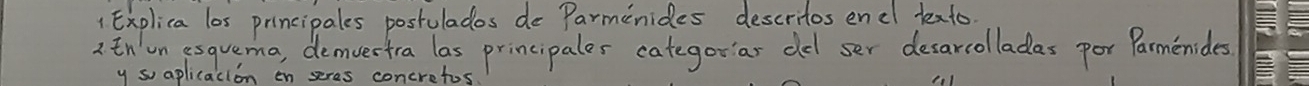 1. Explica los principales postulados de Parménides descritos en el texto.
2 En un esquema, demuestra las principales categorías del ser desarrolladas por Parménides
y su aplicación en seres concretos.